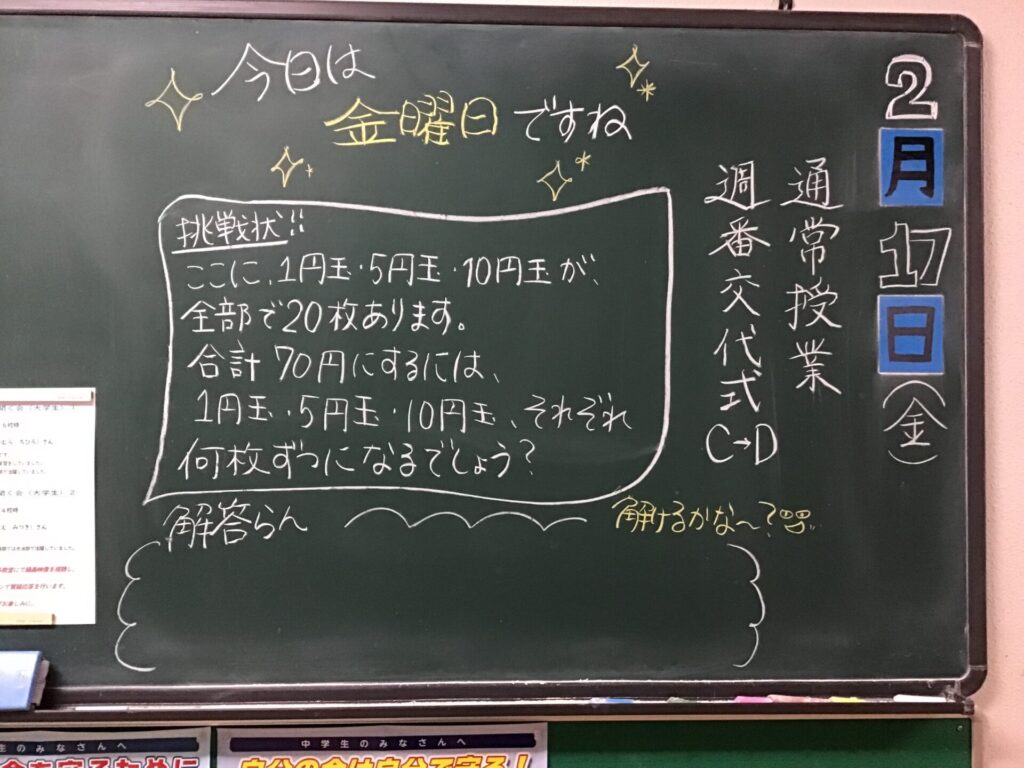 今日は
金曜日ですね
2月17日(金)
通常授業
週番交代式
C→D
挑戦状!!
ここに、1円玉・5円玉・10円玉が、
全部で20枚あります。
合計70円にするには、
1円玉・5円玉・10円玉、それぞれ
何枚ずつになるでしょう?
解答らん
解けるかな〜?
中学生のみなさんへ
自分の命は自分で守る!